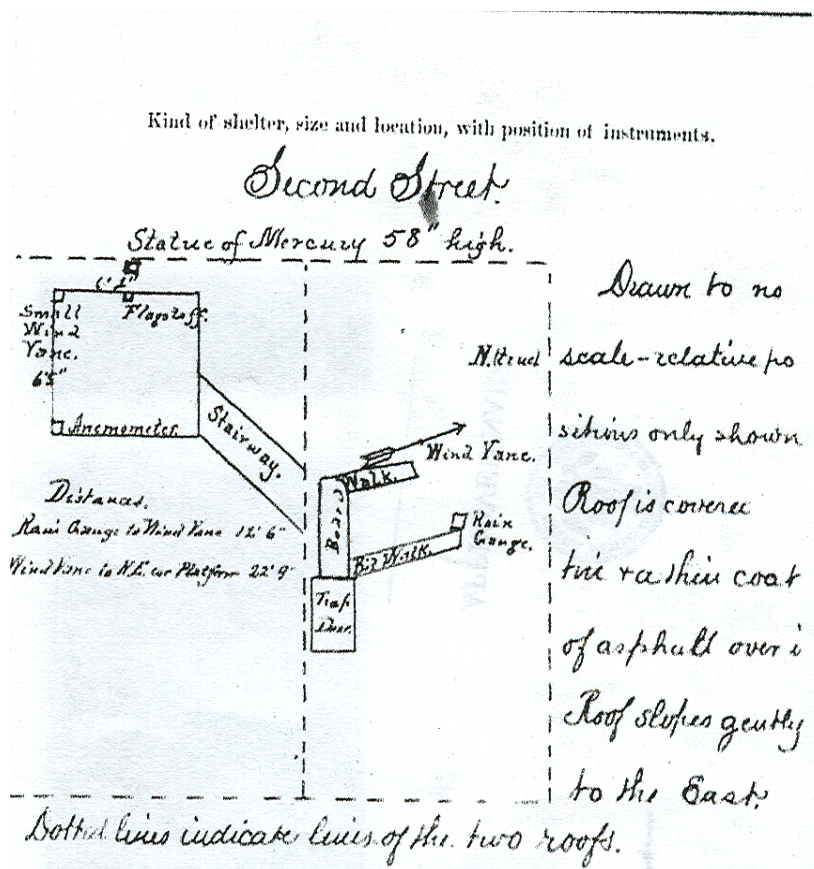 Kind of shelter, size and location, with position of instruments.
Second Street.
Statue of Mercury 58" high.
Flagstaff.
Small
Wind
Vane.
6'5"
Anemometer
Stairway.
Distances.
Rain Gauge to Wind Vane 12' 6"
Wind Vane to N.E. cor Platform 22' 9"
Wind Vane.
Walk.
Board
Rain
Gauge.
Bd Walk.
Trap
Door.
Drawn to no
scale - relative po
sitions only shown
Roof is covere
tin + a thin coat
of asphalt over i
Roof slopes gently
to the East.
Dotted lines indicate lines of the two roofs.